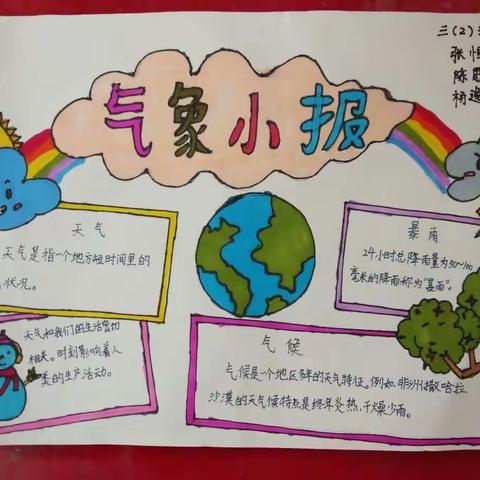 气象小报
三(2)
张
陈
杨逸
天气
天气是指一个地方短时间里的
状况。
天气和我们的生活密切
相关。时刻影响着人
类的生产活动。
暴雨
24小时总降雨量为50~100
毫米的降雨称为"暴雨"。
气候
气候是个地区多年的天气特征。例如,非洲撒哈拉
沙漠的天气候特点是终年炎热,干燥少雨。